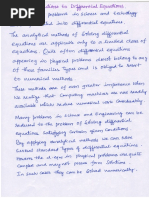 Solutions to Differential Equations
problems in Science and Technology
into differential equations.
The analytical methods of solving differential
equations are applicable only to a limited class of
equations. Quite often differential equations
appearing in physical problems do not belong to any
of these familiar types and one is obliged to resort
to numerical methods.
These methods are of even greater importance when
we realise that computing machines are now readily
available which reduce numerical work considerably.
Many problems in Science and Engineering can be
reduced to the problem of solving differential
equations satisfying certain given conditions.
By applying analytical methods we can solve
Several standard types of differential equations
however the d.eqns in physical problems are quite
complex and may not possess closed form solutions.
In such cases they can be solved numerically.